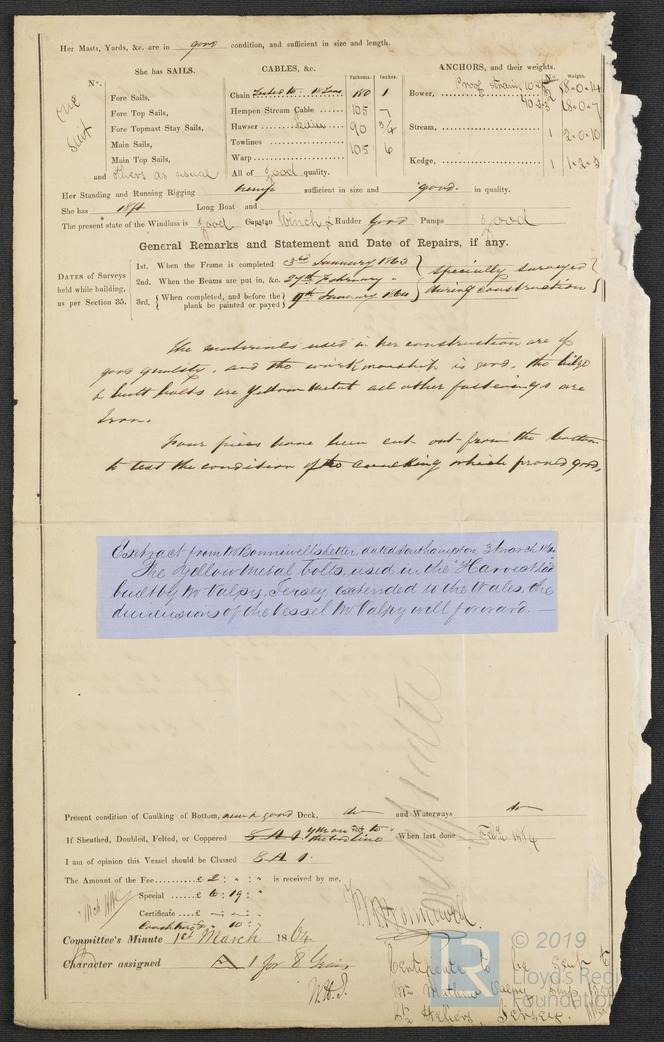 Her Masts, Yards, &c. are in good condition, and sufficient in size and length.
She has SAILS.
CABLES, &c.
Fathoms.
Inches.
ANCHORS, and their weights.
No.
Weight.
No.
One
Suit
Fore Sails,
Fore Top Sails,
Fore Topmast Stay Sails,
Main Sails,
Main Top Sails,
and others as usual
Chain Tested to 18 Tons 180 1
Hempen Stream Cable 105 7
Hawser 90 3/4
Towlines 105 6
Warp
All of good quality.
Bower, Proof strain 8.0.14
8.0.7
Stream, 1 2.0.10
Kedge, 1 1.2.3
Her Standing and Running Rigging hemp sufficient in size and good. in quality.
She has 18ft Long Boat and
The present state of the Windlass is good Capstan Winch & Rudder Good Pumps good
General Remarks and Statement and Date of Repairs, if any.
DATES of Surveys held while building, as per Section 35.
1st. When the Frame is completed 3rd January 1863
2nd. When the Beams are put in, &c. 27th February "
3rd. When completed, and before the plank be painted or payed 9th January 1864
Specially surveyed
during construction
The materials used in her construction are of
good quality, and the workmanship is good, the bilge
& butt bolts are Yellow Metal all other fastenings are
Iron.
Four pieces have been cut out from the bottom
to test the condition of the caulking which proved good,
Extract from Mr Bonniwell's letter, dated Southampton 3 March
The Yellow Metal bolts, used in the "Harvest
built by Mr Valpy, Jersey, extended to the Wales, the
dimensions of the Vessel Mr Valpy will forward.—
Present condition of Caulking of Bottom, new & good Deck, do and Waterways do
If Sheathed, Doubled, Felted, or Coppered When last done Feby 1864
I am of opinion this Vessel should be Classed
The Amount of the Fee £ 2 : " : " is received by me,
Special £ 6 : 19 : "
Certificate £ — : — : —
10 : "
Committee's Minute 1st March 1864
Character assigned A 1 for 8 Years
W.H.J.
Certificate to be sent to
Mr Mathew Valpy Ship
St Heliers, Jersey.
LR
© 2019
Lloyd's Register
Foundation